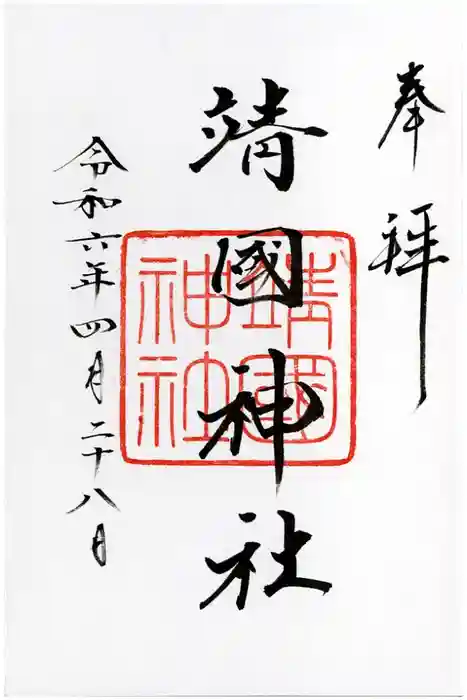 奉拝
靖國神社
靖國
神社
令和六年四月二十八日